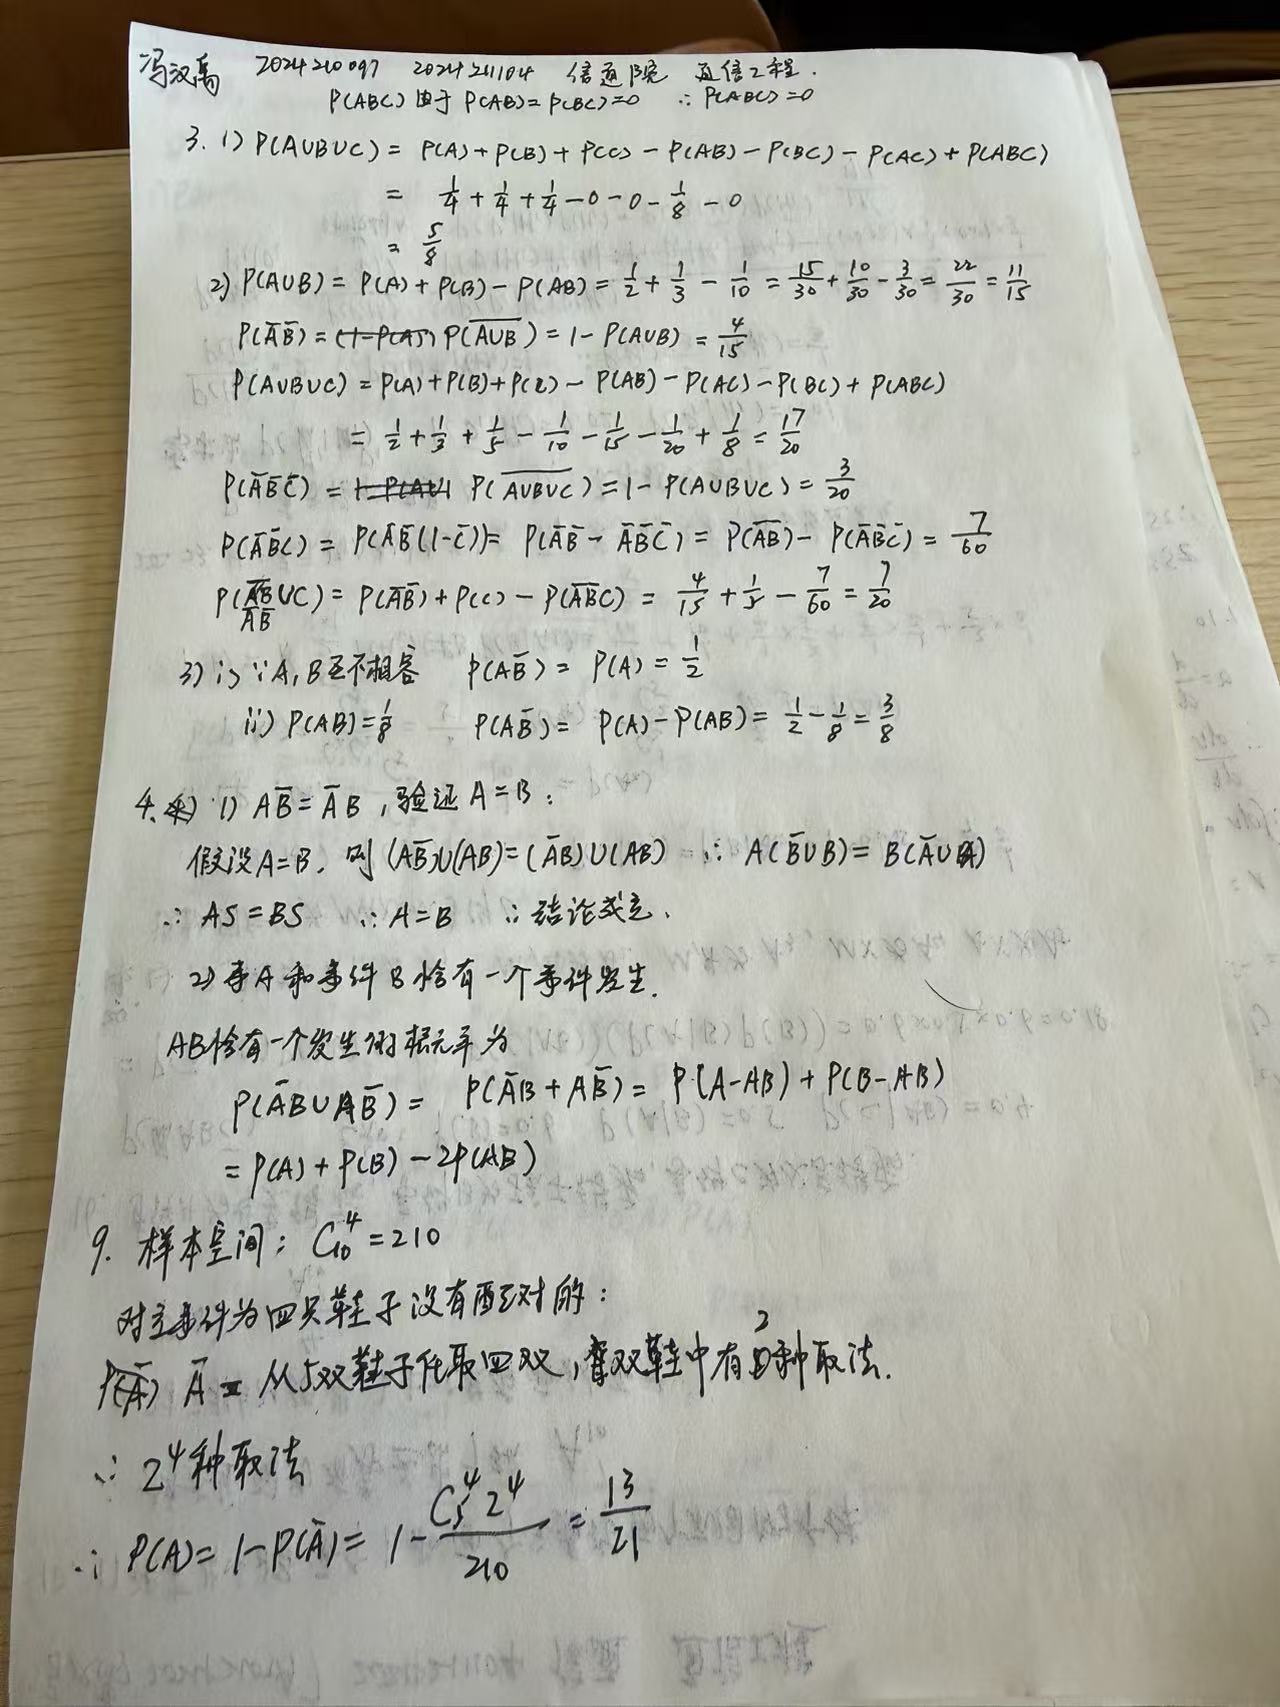 冯汉禹 2024210097 2024211104 信通院 通信工程.
P(ABC) 由于 P(AB)=P(BC)=0 ∴ P(ABC)=0
3. 1) P(A∪B∪C) = P(A)+P(B)+P(C)-P(AB)-P(BC)-P(AC)+P(ABC)
= 1/4+1/4+1/4-0-0-1/8-0
= 5/8
2) P(A∪B) = P(A)+P(B)-P(AB) = 1/2+1/3-1/10 = 15/30+10/30-3/30 = 22/30 = 11/15
P(A̅B̅) = P(A∪B)̅ = 1-P(A∪B) = 4/15
P(A∪B∪C) = P(A)+P(B)+P(C)-P(AB)-P(AC)-P(BC)+P(ABC)
= 1/2+1/3+1/5-1/10-1/15-1/20+1/8 = 17/20
P(A̅B̅C̅) = P(A∪B∪C)̅ = 1-P(A∪B∪C) = 3/20
P(A̅B̅C) = P(A̅B̅(1-C̅)) = P(A̅B̅-A̅B̅C̅) = P(A̅B̅)-P(A̅B̅C̅) = 7/60
P(A̅B̅∪C) = P(A̅B̅)+P(C)-P(A̅B̅C) = 4/15+1/5-7/60 = 7/20
A̅B̅
3) i) ∵A,B互不相容 P(AB̅) = P(A) = 1/2
ii) P(AB)=1/8 P(AB̅) = P(A)-P(AB) = 1/2-1/8 = 3/8
4. 1) AB̅=A̅B,验证A=B:
假设A=B,则(AB̅)∪(AB)=(A̅B)∪(AB) ∴ A(B̅∪B)=B(A̅∪A)
∴ AS=BS ∴A=B ∴结论成立.
2) 事A和事件B恰有一个事件发生.
AB恰有一个发生的概率为
P(A̅B∪AB̅) = P(A̅B+AB̅) = P(A-AB)+P(B-AB)
=P(A)+P(B)-2P(AB)
9. 样本空间: C₁₀⁴=210
对立事件为四只鞋子没有配对的:
P(A̅) A̅ = 从5双鞋子任取四双,每双鞋中有2种取法.
∴ 2⁴种取法
∴ P(A)=1-P(A̅)=1-C₅⁴2⁴/210=13/21